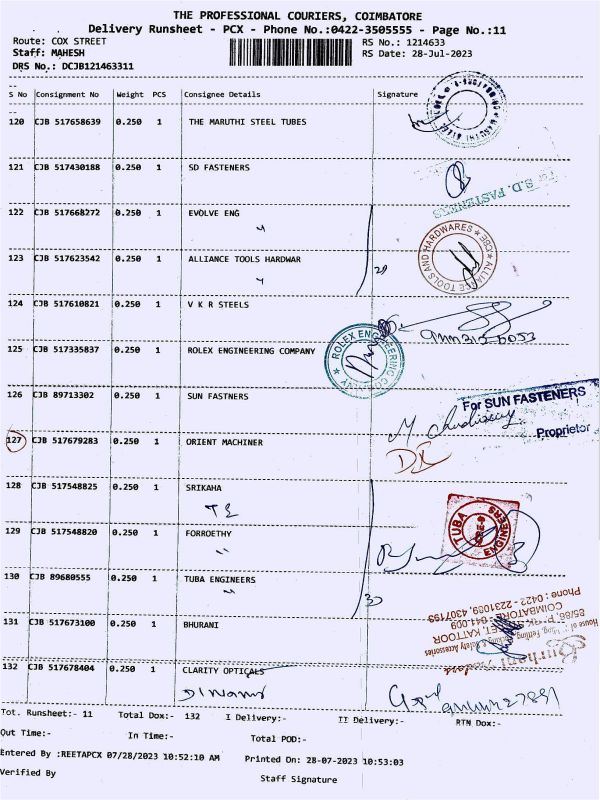 THE PROFESSIONAL COURIERS, COIMBATORE
Delivery Runsheet - PCX - Phone No.:0422-3505555 - Page No.:11
Route: COX STREET RS No.: 1214633
Staff: MAHESH RS Date: 28-Jul-2023
DRS No.: DCJB121463311
S No Consignment No Weight PCS Consignee Details Signature
120 CJB 517658639 0.250 1 THE MARUTHI STEEL TUBES
121 CJB 517430188 0.250 1 SD FASTENERS
For S.D. FASTENERS
122 CJB 517668272 0.250 1 EVOLVE ENG
123 CJB 517623542 0.250 1 ALLIANCE TOOLS HARDWAR
ALLIANCE TOOLS AND HARDWARES CBE
124 CJB 517610821 0.250 1 V K R STEELS
125 CJB 517335837 0.250 1 ROLEX ENGINEERING COMPANY
ROLEX ENGINEERING
126 CJB 89713302 0.250 1 SUN FASTNERS
For SUN FASTENERS
Proprietor
127 CJB 517679283 0.250 1 ORIENT MACHINER
128 CJB 517548825 0.250 1 SRIKAHA
129 CJB 517548820 0.250 1 FORROETHY
TUBA ENGINEERS
130 CJB 89680555 0.250 1 TUBA ENGINEERS
131 CJB 517673100 0.250 1 BHURANI
Phone : 0422 - 2231039, 4307193
COIMBATORE - 641 009
KATTOOR
132 CJB 517678404 0.250 1 CLARITY OPTICALS
Tot. Runsheet:- 11 Total Dox:- 132 I Delivery:- II Delivery:- RTN Dox:-
Out Time:- In Time:- Total POD:-
Entered By :REETAPCX 07/28/2023 10:52:10 AM Printed On: 28-07-2023 10:53:03
Verified By Staff Signature